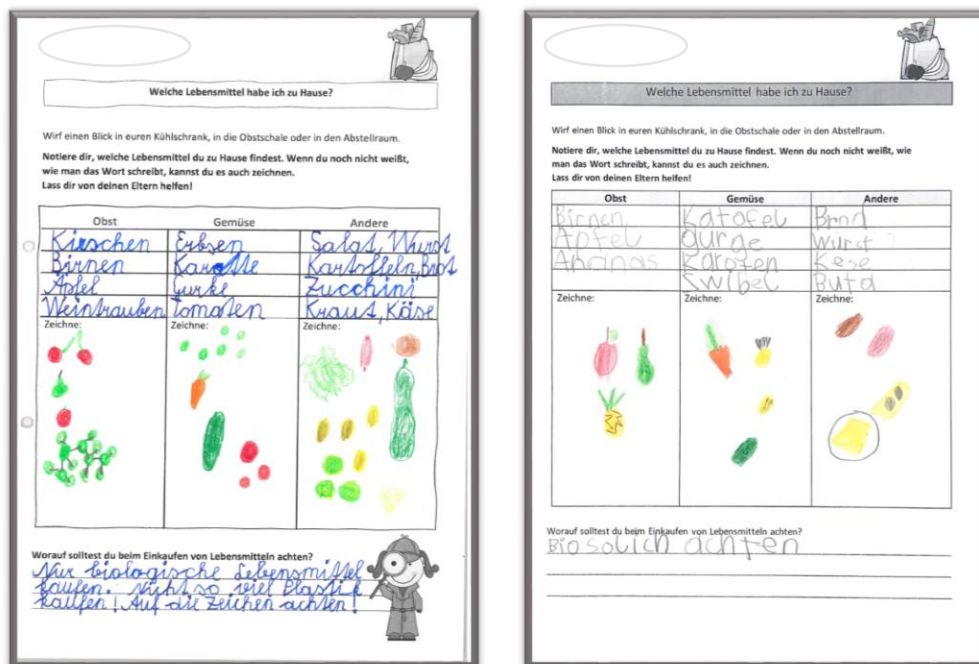 Welche Lebensmittel habe ich zu Hause?
Wirf einen Blick in euren Kühlschrank, in die Obstschale oder in den Abstellraum.
Notiere dir, welche Lebensmittel du zu Hause findest. Wenn du noch nicht weißt,
wie man das Wort schreibt, kannst du es auch zeichnen.
Lass dir von deinen Eltern helfen!
Obst Gemüse Andere
Kirschen Erbsen Salat, Wurst
Birnen Karotte Kartoffeln, Brot
Äpfel Gurke Zucchini
Weintrauben Tomaten Kraut, Käse
Zeichne: Zeichne: Zeichne:
Worauf solltest du beim Einkaufen von Lebensmitteln achten?
Nur biologische Lebensmittel
kaufen. Nicht so viel Plastik
kaufen! Auf die Zeichen achten!
Welche Lebensmittel habe ich zu Hause?
Wirf einen Blick in euren Kühlschrank, in die Obstschale oder in den Abstellraum.
Notiere dir, welche Lebensmittel du zu Hause findest. Wenn du noch nicht weißt, wie
man das Wort schreibt, kannst du es auch zeichnen.
Lass dir von deinen Eltern helfen!
Obst Gemüse Andere
Birnen Katofel Brod
Apfel gurge Wurst
Ananas Karoten Kese
Swibel Buta
Zeichne: Zeichne: Zeichne:
Worauf solltest du beim Einkaufen von Lebensmitteln achten?
Bio solich achten